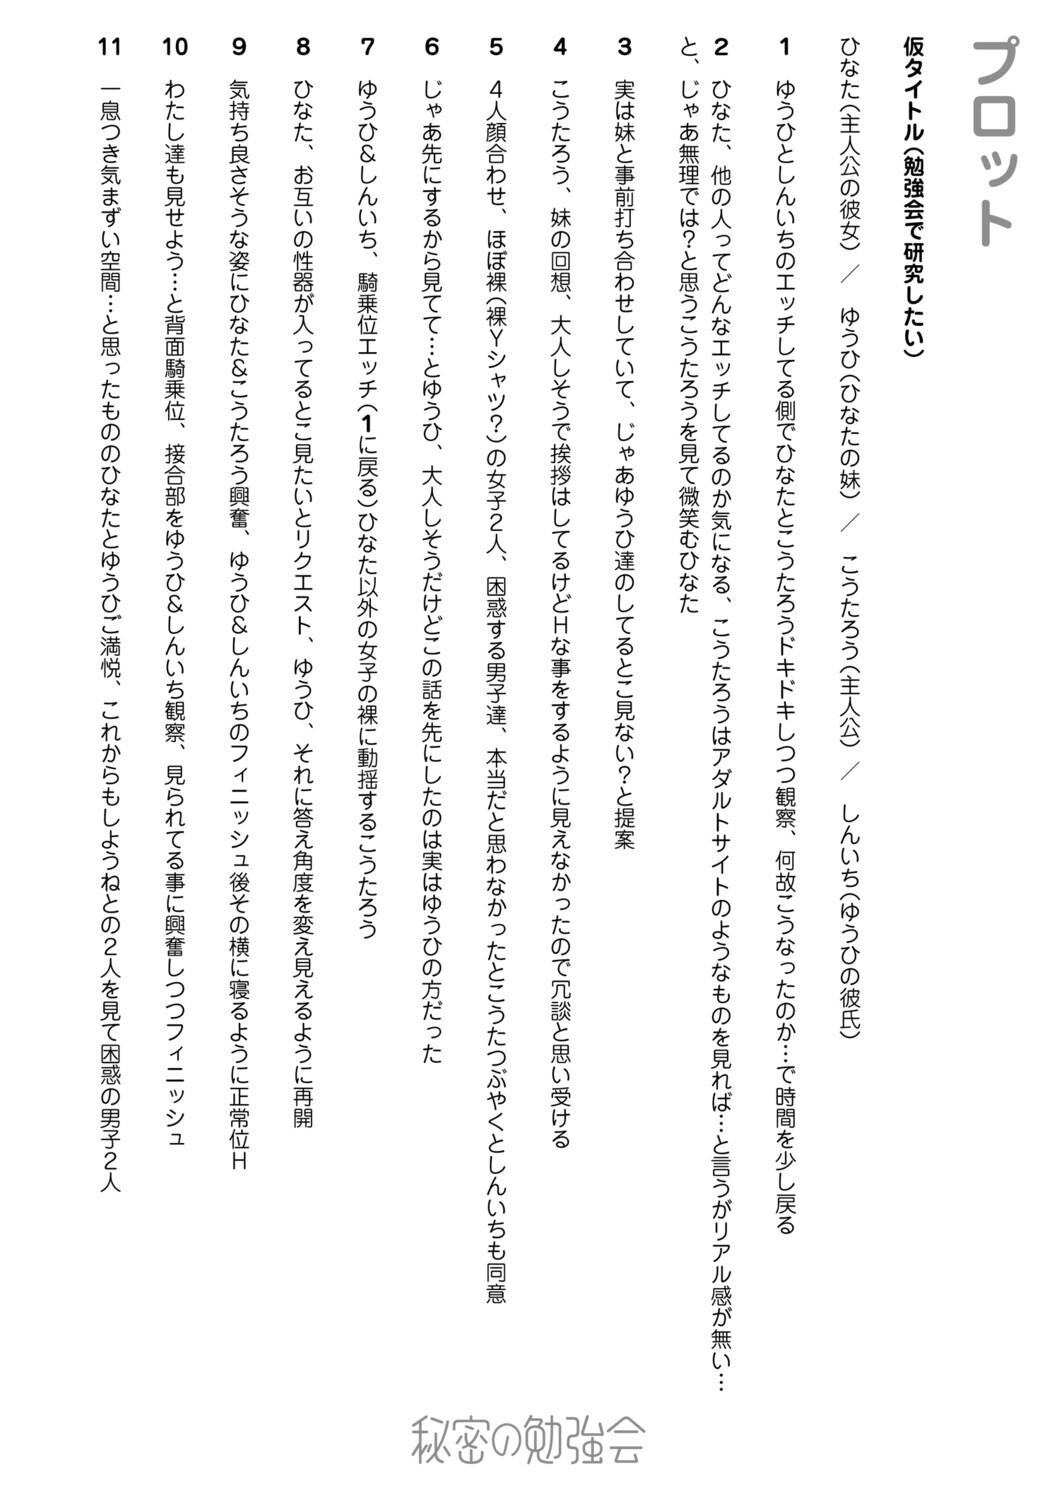 プロット
仮タイトル（勉強会で研究したい）
ひなた（主人公の彼女）／ ゆうひ（ひなたの妹）／ こうたろう（主人公）／ しんいち（ゆうひの彼氏）
1 ゆうひとしんいちのエッチしてる側でひなたとこうたろうドキドキしつつ観察、何故こうなったのか…で時間を少し戻る
2 ひなた、他の人ってどんなエッチしてるのか気になる、こうたろうはアダルトサイトのようなものを見れば…と言うがリアル感が無い…
と、じゃあ無理では？と思うこうたろうを見て微笑むひなた
3 実は妹と事前打ち合わせしていて、じゃあゆうひ達のしてるとこ見ない？と提案
4 こうたろう、妹の回想、大人しそうで挨拶はしてるけどＨな事をするように見えなかったので冗談と思い受ける
5 ４人顔合わせ、ほぼ裸（裸Ｙシャツ？）の女子２人、困惑する男子達、本当だと思わなかったとこうたつぶやくとしんいちも同意
6 じゃあ先にするから見てて…とゆうひ、大人しそうだけどこの話を先にしたのは実はゆうひの方だった
7 ゆうひ＆しんいち、騎乗位エッチ（1に戻る）ひなた以外の女子の裸に動揺するこうたろう
8 ひなた、お互いの性器が入ってるとこ見たいとリクエスト、ゆうひ、それに答え角度を変え見えるように再開
9 気持ち良さそうな姿にひなた＆こうたろう興奮、ゆうひ＆しんいちのフィニッシュ後その横に寝るように正常位Ｈ
10 わたし達も見せよう…と背面騎乗位、接合部をゆうひ＆しんいち観察、見られてる事に興奮しつつフィニッシュ
11 一息つき気まずい空間…と思ったもののひなたとゆうひご満悦、これからもしようねとの２人を見て困惑の男子２人
秘密の勉強会